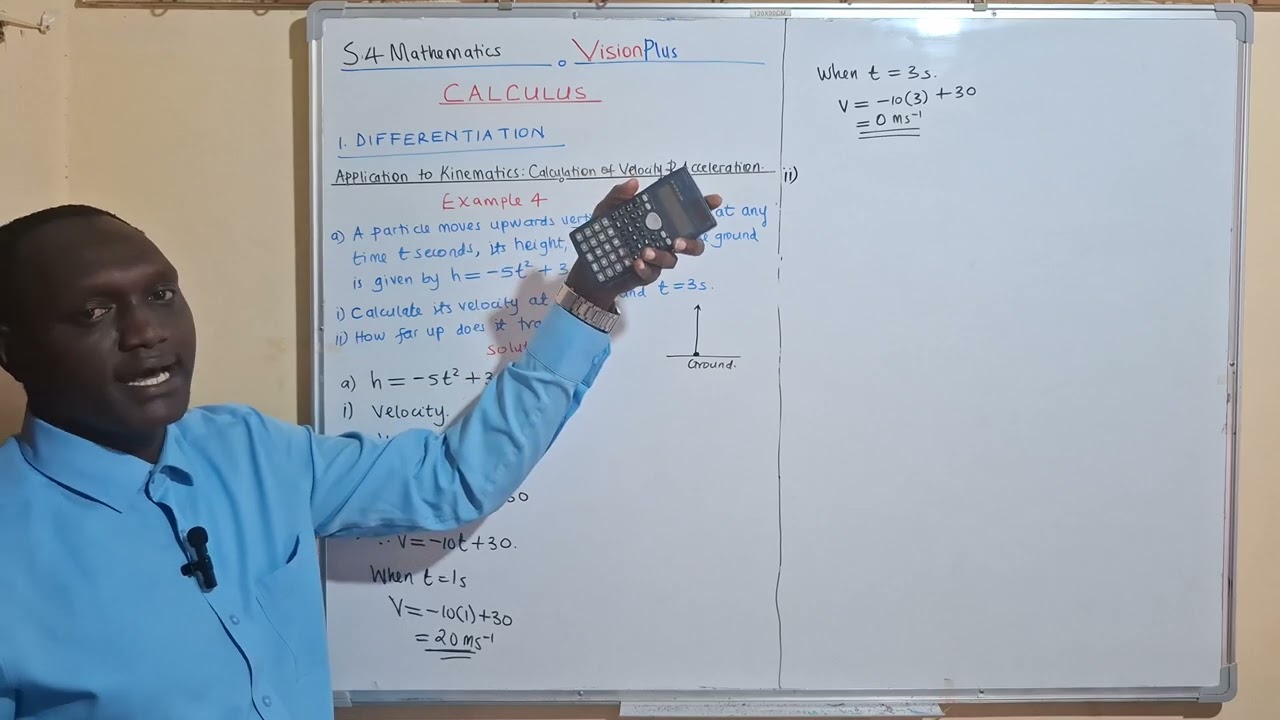 120X90CM
S.4 Mathematics VisionPlus
CALCULUS
1. DIFFERENTIATION
Application to Kinematics: Calculation of Velocity & Acceleration.
Example 4
a) A particle moves upwards at any
time t seconds, its height, ground
is given by h = -5t² + 3
i) Calculate its velocity at and t = 3s.
ii) How far up does it
Ground.
a) h = -5t² + 3
i) Velocity.
∴ V = -10t + 30.
When t = 1s
V = -10(1) + 30
= 20 ms⁻¹
When t = 3s.
V = -10(3) + 30
= 0 ms⁻¹
ii)